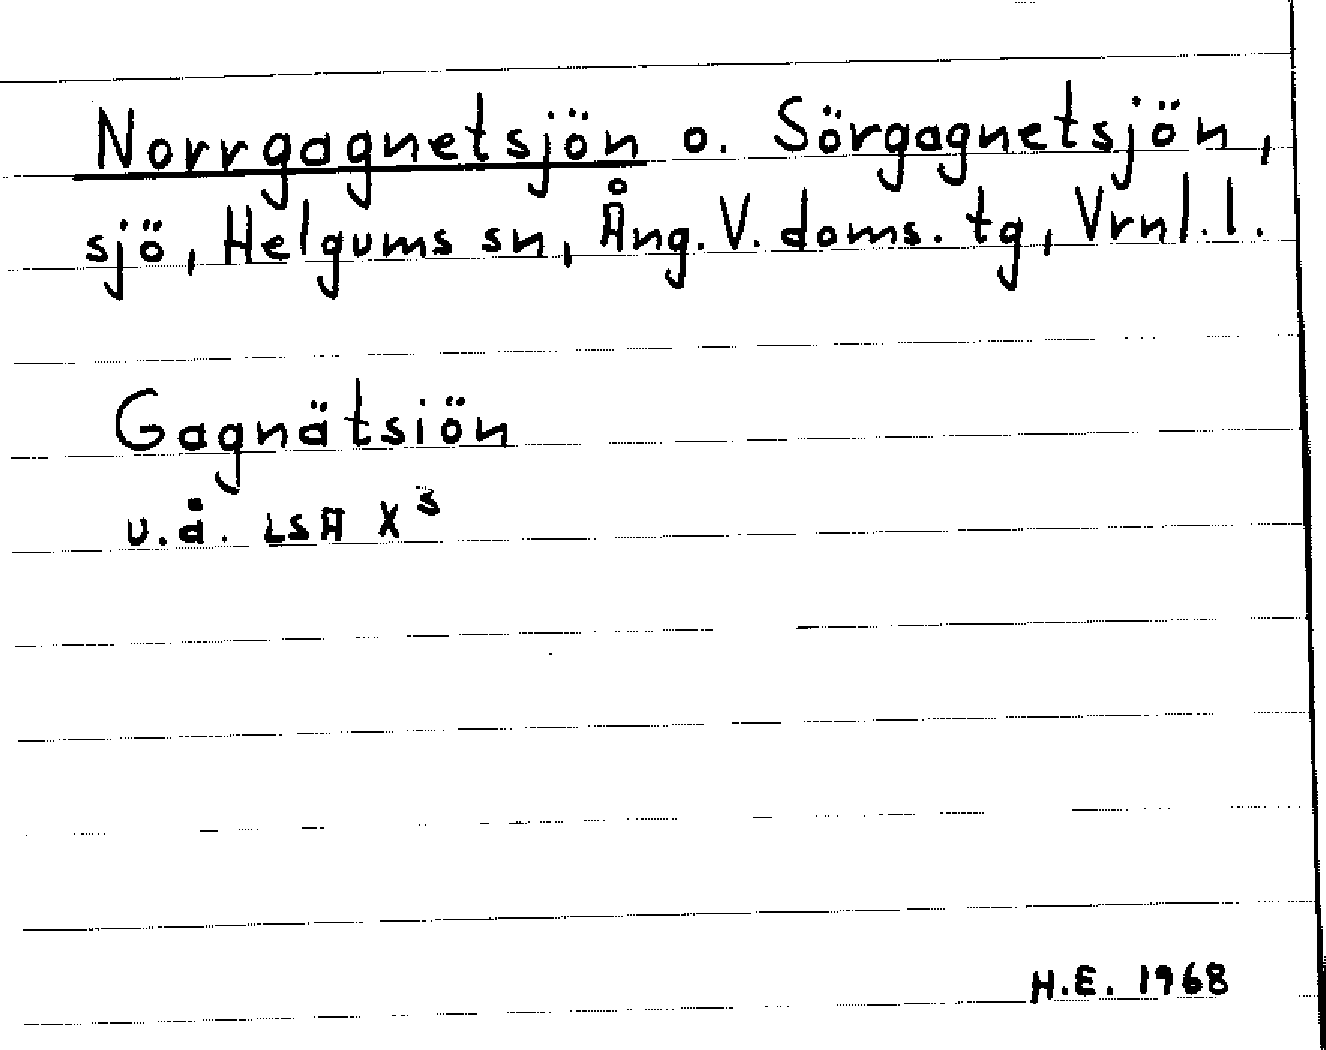 Norrgagnetsjön o. Sörgagnetsjön,
sjö, Helgums sn, Ång. V. doms. tg, Vrnl. l.
Gagnätsiön
u.å. LSA X³
H.E. 1968